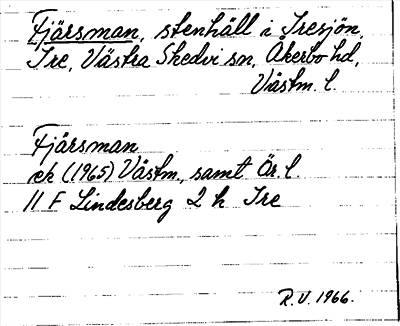 Fjärsman, stenhäll i Iresjön,
Ire, Västra Skedvi sn, Åkerbo hd,
Västm. l.
Fjärsman
ek (1965) Västm., samt Ör. l.
11 F Lindesberg 2 h Ire
R.V. 1966.